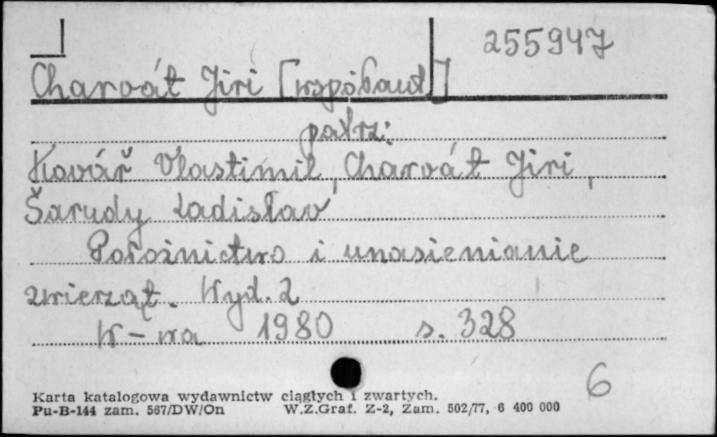 255947
Charvát Jiri [współaut.]
patrz:
Kovář Vlastimil, Charvát Jiri,
Šarudy Ladislav
Położnictwo i unasienianie
zwierząt. Wyd. 2
W-wa 1980 s. 328
6
Karta katalogowa wydawnictw ciągłych i zwartych.
Pu-B-144 zam. 567/DW/On W.Z.Graf. Z-2, Zam. 502/77, 6 400 000